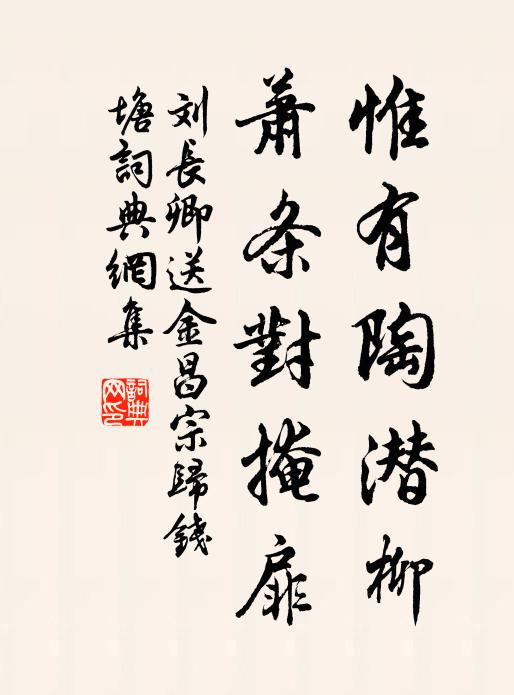 惟有陶潜柳
萧条對掩扉
刘長卿送金昌宗歸錢
塘詞典網集
詞典
网印